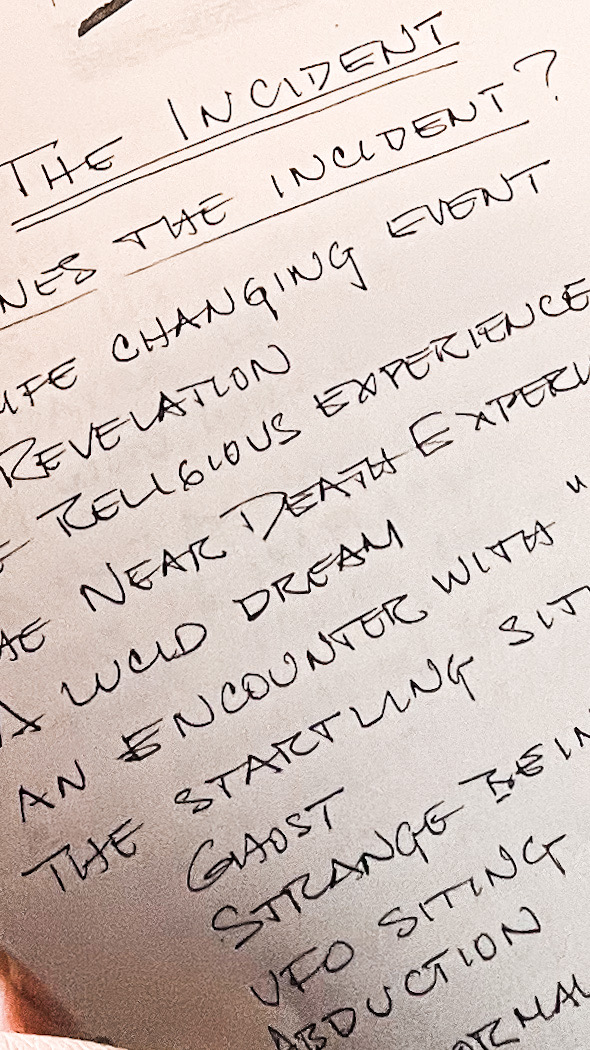 THE INCIDENT
NES THE INCIDENT?
IFE CHANGING EVENT
REVELATION
E RELIGIOUS EXPERIENCE
HE NEAR DEATH EXPERI
A LUCID DREAM
AN ENCOUNTER WITH "
THE STARTLING SITI
GHOST
STRANGE BEIN
UFO SITING
ABDUCTION
ORMAL